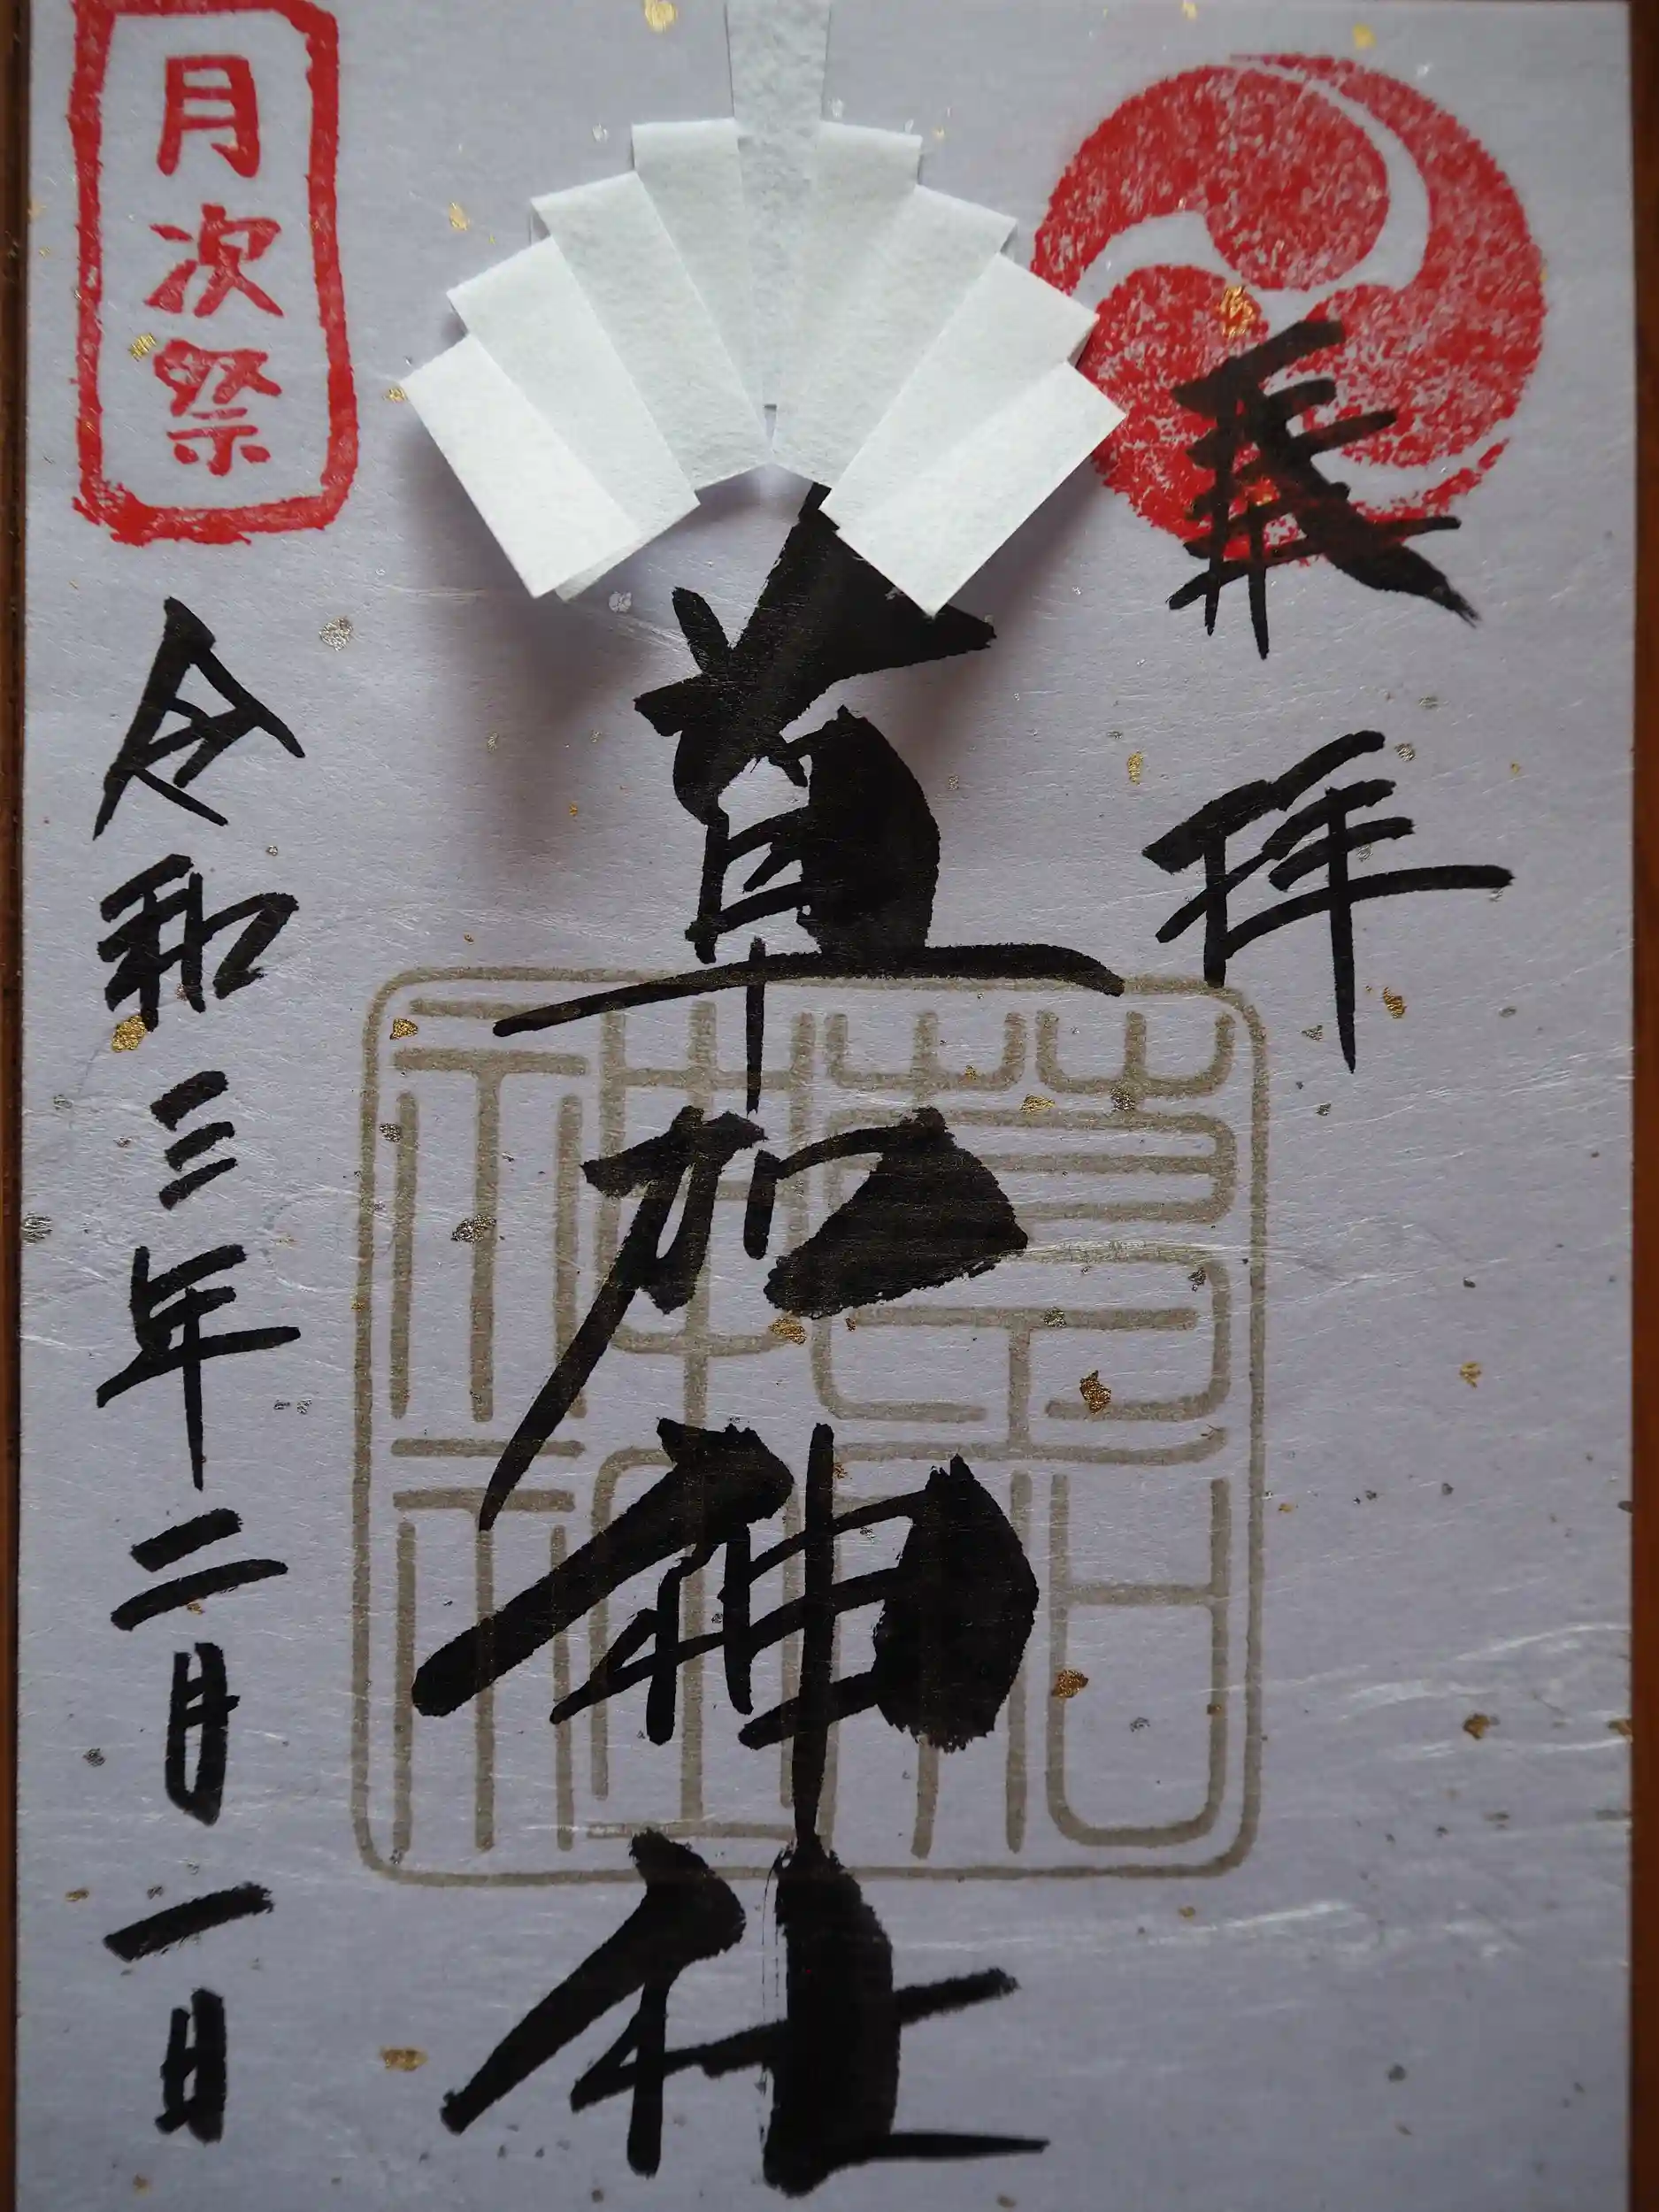 奉拝
草加神社
令和三年二月一日
月次祭